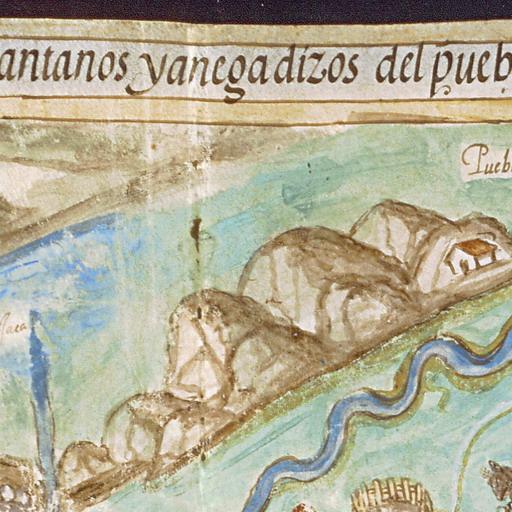 antanos yanegadizos del pueb
Puebl